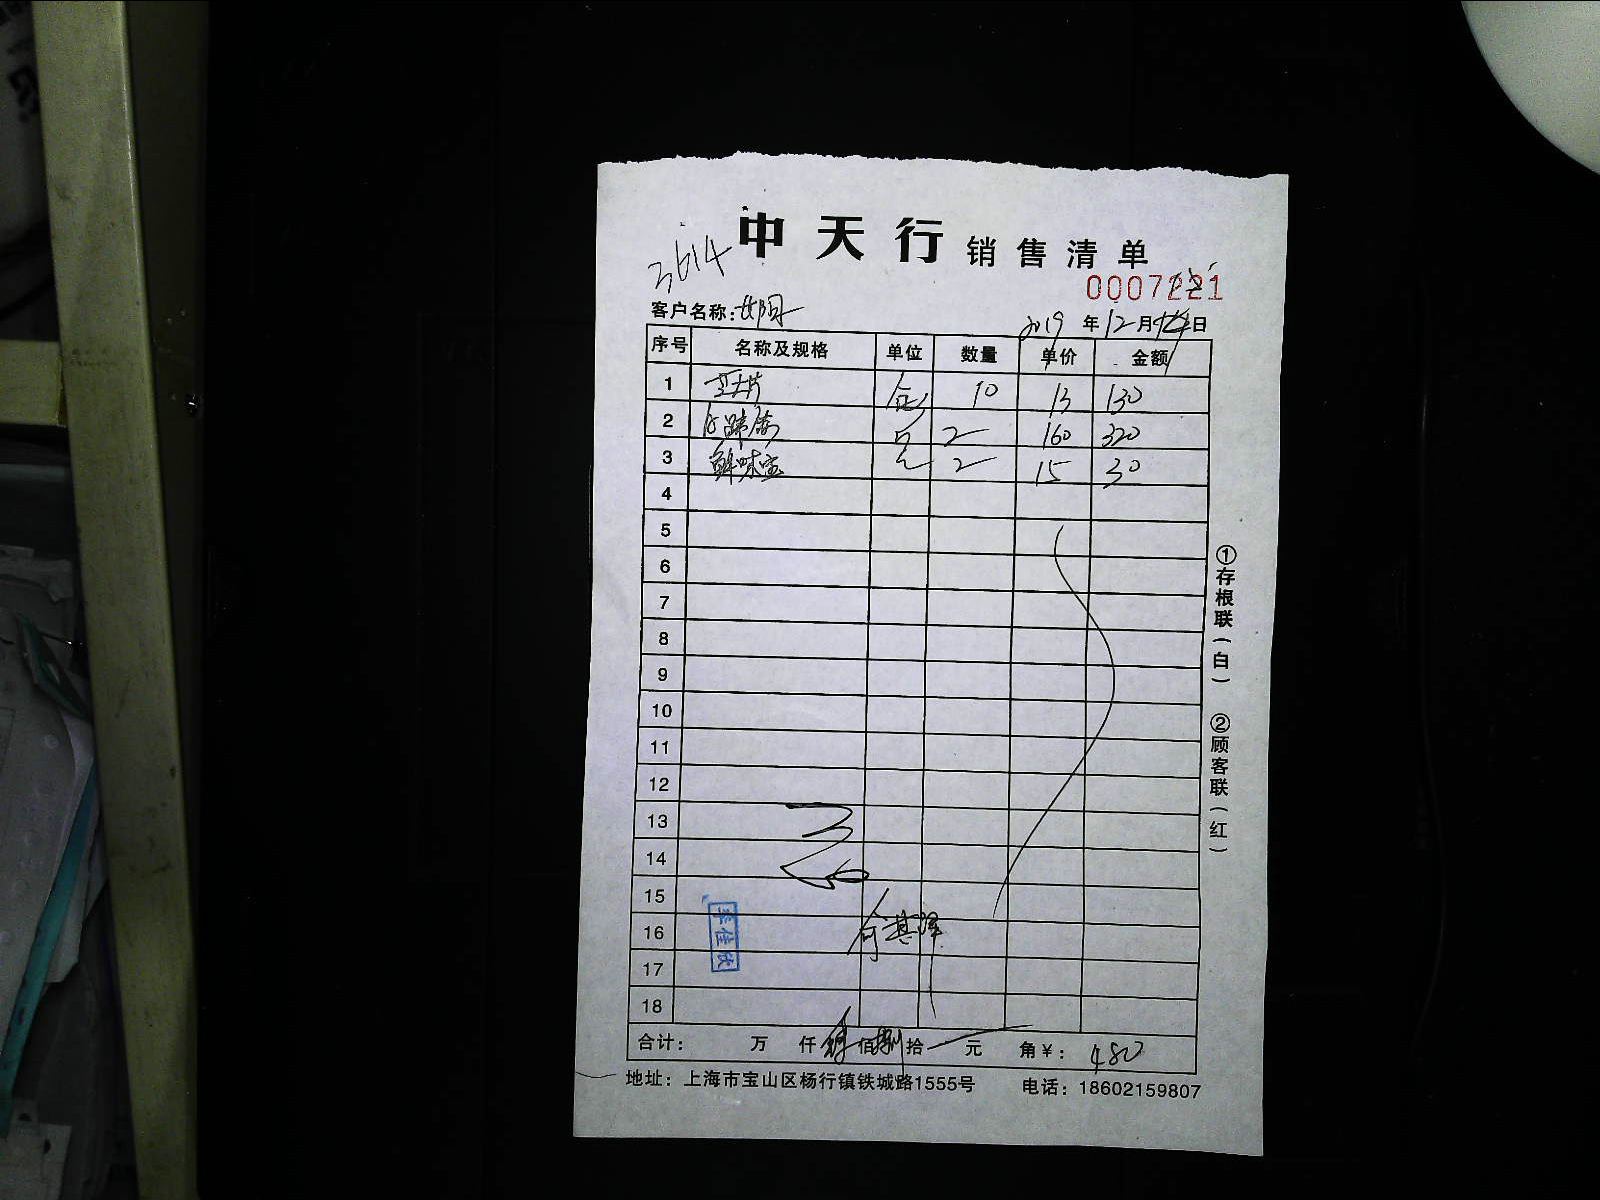 中天行 销售清单
3614
0007221
客户名称：
2019 年 12 月 日
序号 名称及规格 单位 数量 单价 金额
1 芝士片 包 10 13 130
2 2 160 320
3 鲜味宝 2 15 30
4
5
6
7
8
9
10
11
12
13
14
15
16
17
18
李佳欣
合计： 万 仟 肆 佰 捌 拾 元 角￥： 480
地址：上海市宝山区杨行镇铁城路1555号 电话：18602159807
①存根联（白） ②顾客联（红）